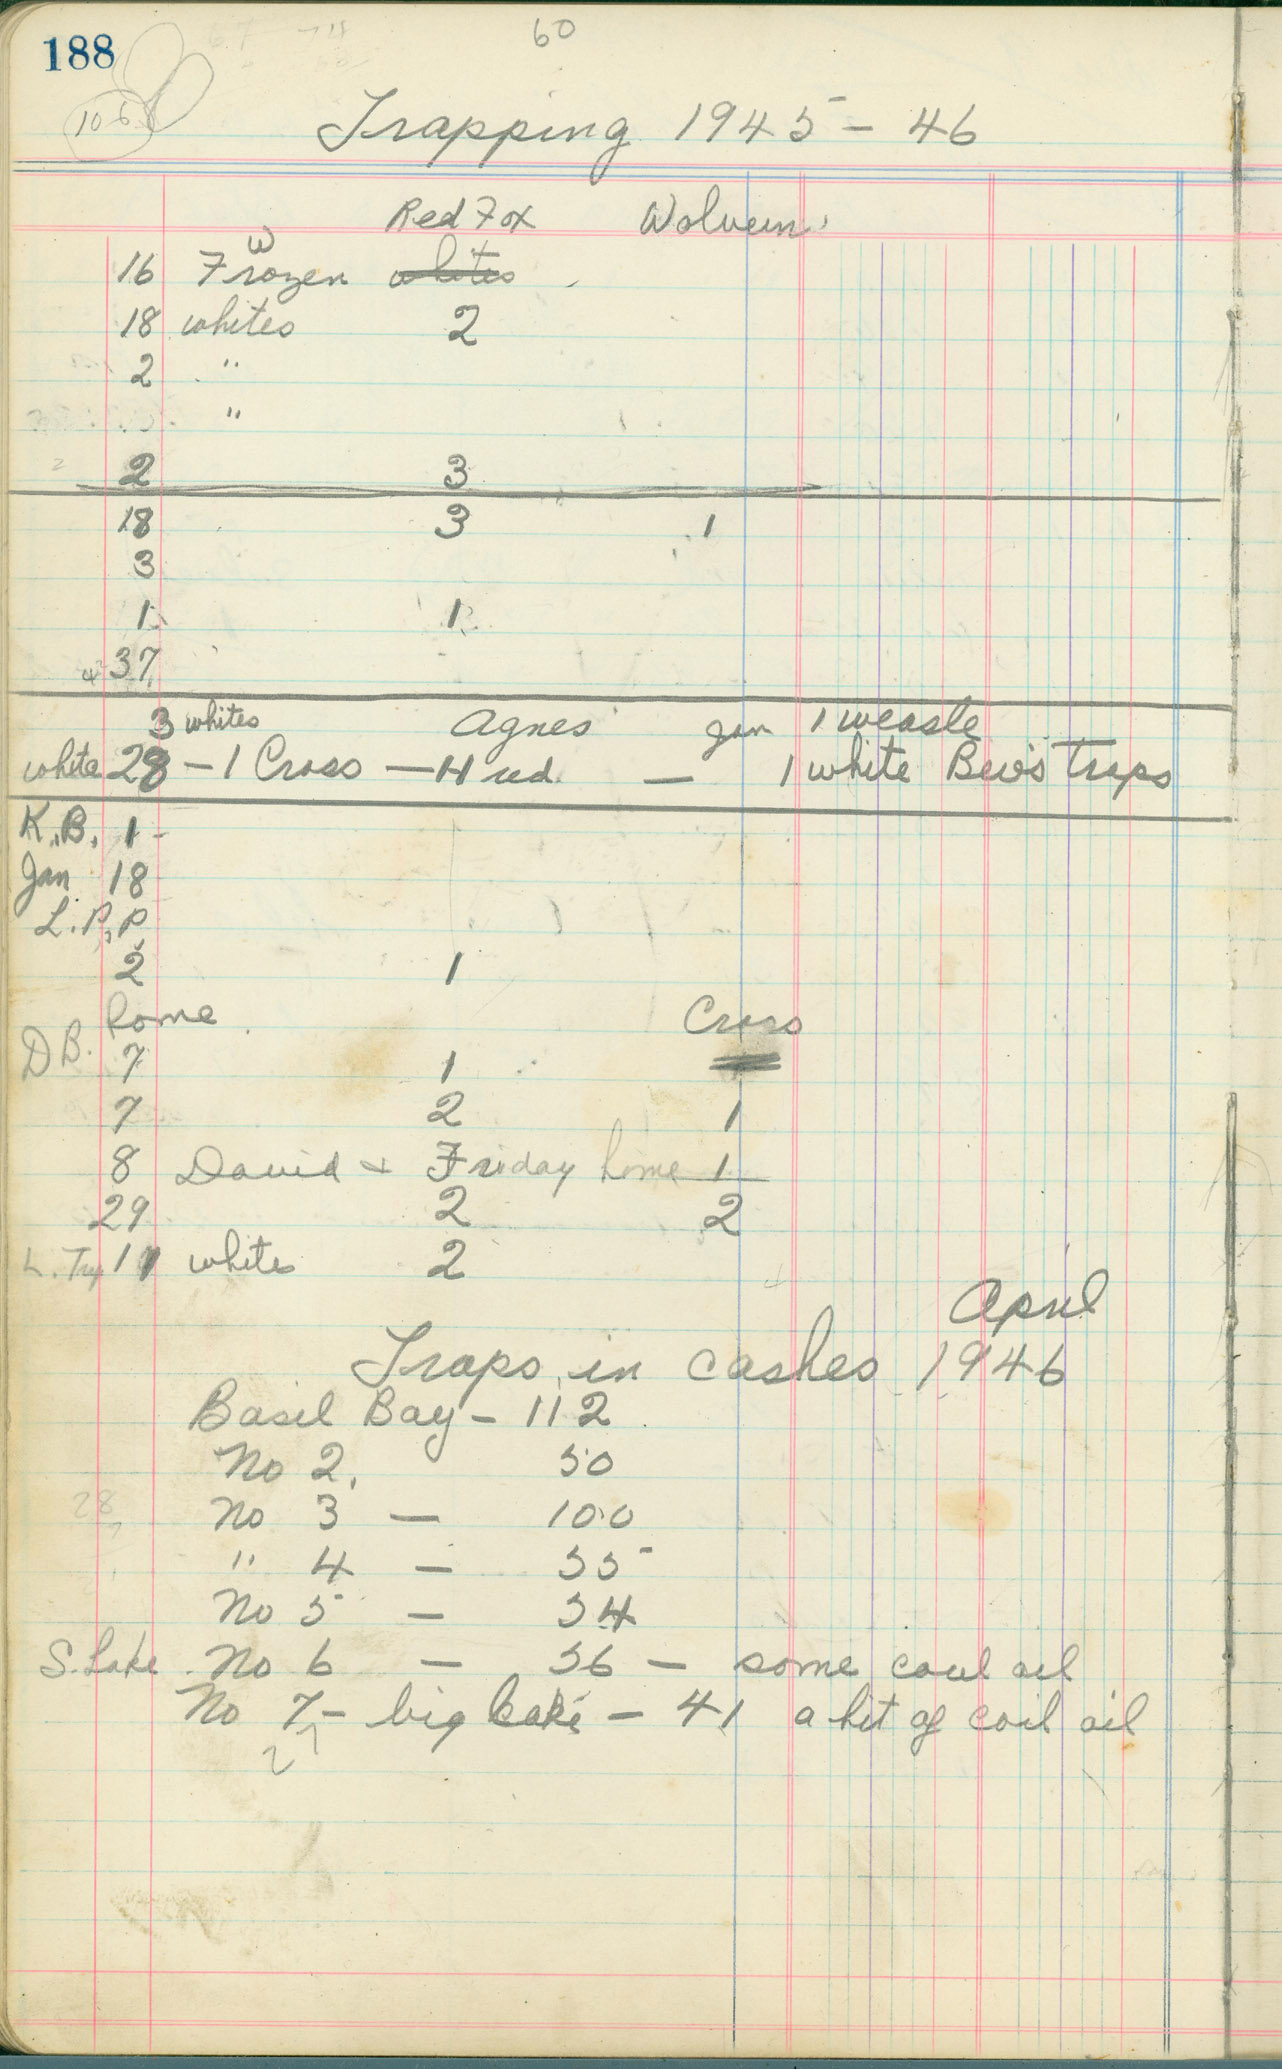 188
60
106
Trapping 1945 - 46
Red Fox Wolverin
W
16 Frozen whites
18 whites 2
2 "
"
2 3
18 3 1
3
1 1
37
3 whites Agnes Jan 1 weasle
white 28 - 1 Cross - 4 red - 1 white Bew's Traps
K.B. 1 -
Jan 18
L.P.P
2 1
home Cross
D B. 7 1
7 2 1
8 David + Friday home 1
29 2 2
L. Trip 11 white 2
April
Traps in cashes 1946
Basil Bay - 112
No 2. 50
28
No 3 - 100
" 4 - 55
No 5 - 54
S. Lake No 6 - 56 - some coul oil
No 7 - big Lake - 41 a bit of coil oil
27